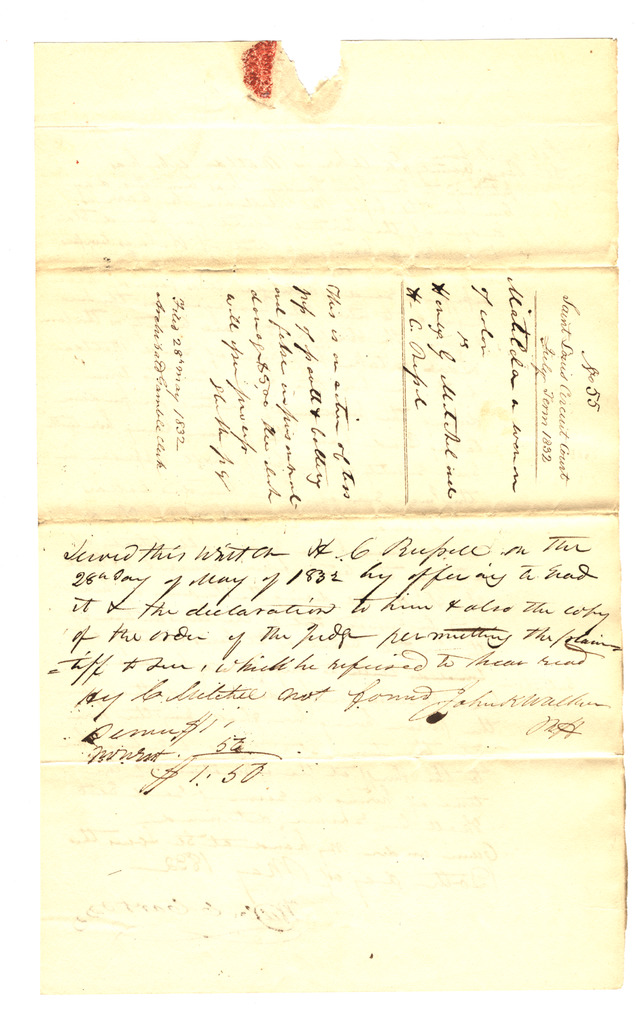 No 55
Saint Louis Circuit Court
July Term 1832
Matilda a woman
of color
vs
Henry G Mitchell and
H. C. Russell
This is an action of tres
pass of assault & battery
and false imprisonment
damages $500 the clerk
will issue process
Filed 28th May 1832
Archibald Gamble Clerk
Served this Writ on H C Russell on the
28th Day of May of 1832 by offering to read
it & the declaration to him & also the copy
of the order of the Judge permitting the plain=
=tiff to sue, which he refused to hear read
Hy G Mitchel not found John K Walker
Shff
Service $1
Non est 50
$1.50